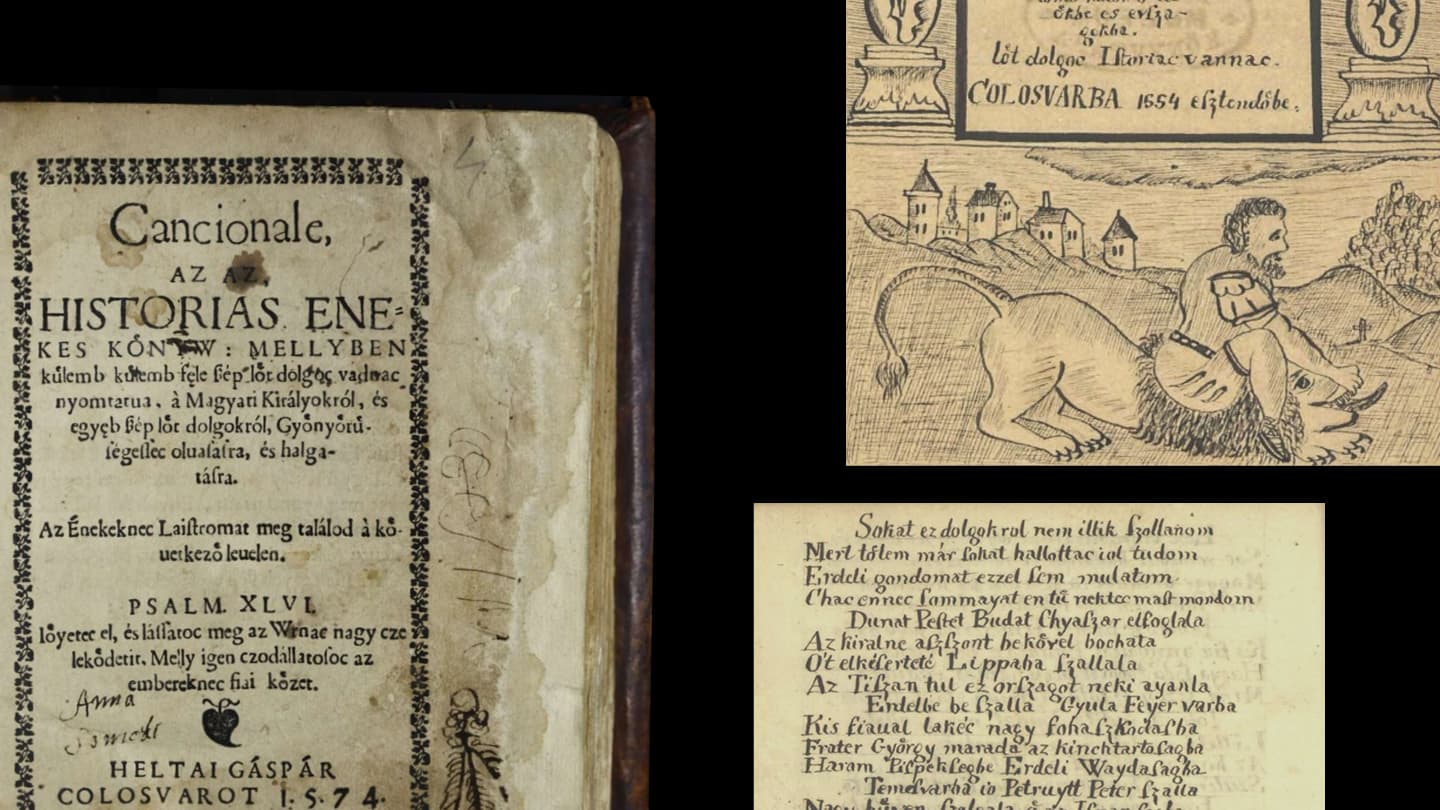 Cancionale,
AZ AZ,
HISTORIAS ENE=
KES KŐNYW: MELLYBEN
kűlemb kűlemb fęle ßép lőt dolgoc vadnac
nyomtatua, à Magyari Királyokról, és
egyęb ßép lőt dolgokról, Győnyőrű-
ſégeſſec oluaſaſra, és halga-
táſra.
Az Énekeknec Laiſtromat meg találod à kő-
uetkező leuelen.
PSALM. XLVI.
Iőyetec el, és láſſatoc meg az Wrnac nagy cze
lekődetit. Melly igen czodállatoſoc az
embereknec fiai kőzet.
Anna
HELTAI GÁSPÁR
COLOSVAROT 1.5.7 4.
őkbe es erſza-
gokba.
lőt dolgoc Iſtoriac vannac.
COLOSVARBA 1554 eſztendőbe.
Sokat ez dolgokrol nem illik ſzollanom
Mert tőlem már ſokat hallottac iol tudom
Erdeli gondomat ezzel ſem mulatom
Chac ennec ſommayat en tű nektec maſt mondom
Dunat Peſtet Budat Chyaſzar elfoglala
Az kiralne aſzſzont bekővel bochata
Őt elkéſerteté Lippaba ſzallala
Az Tiſzan tul ez orſzagot neki ayanla
Erdelbe be ſzalla Gyula Feyer varba
Kis fiaual lakéc nagy fohaſzkodaſba
Frater György marada az kinchtartoſagba
Haram Piſpekſegbe Erdeli Waydaſagba
Temeſvarba io Petruytt Peter ſzalla